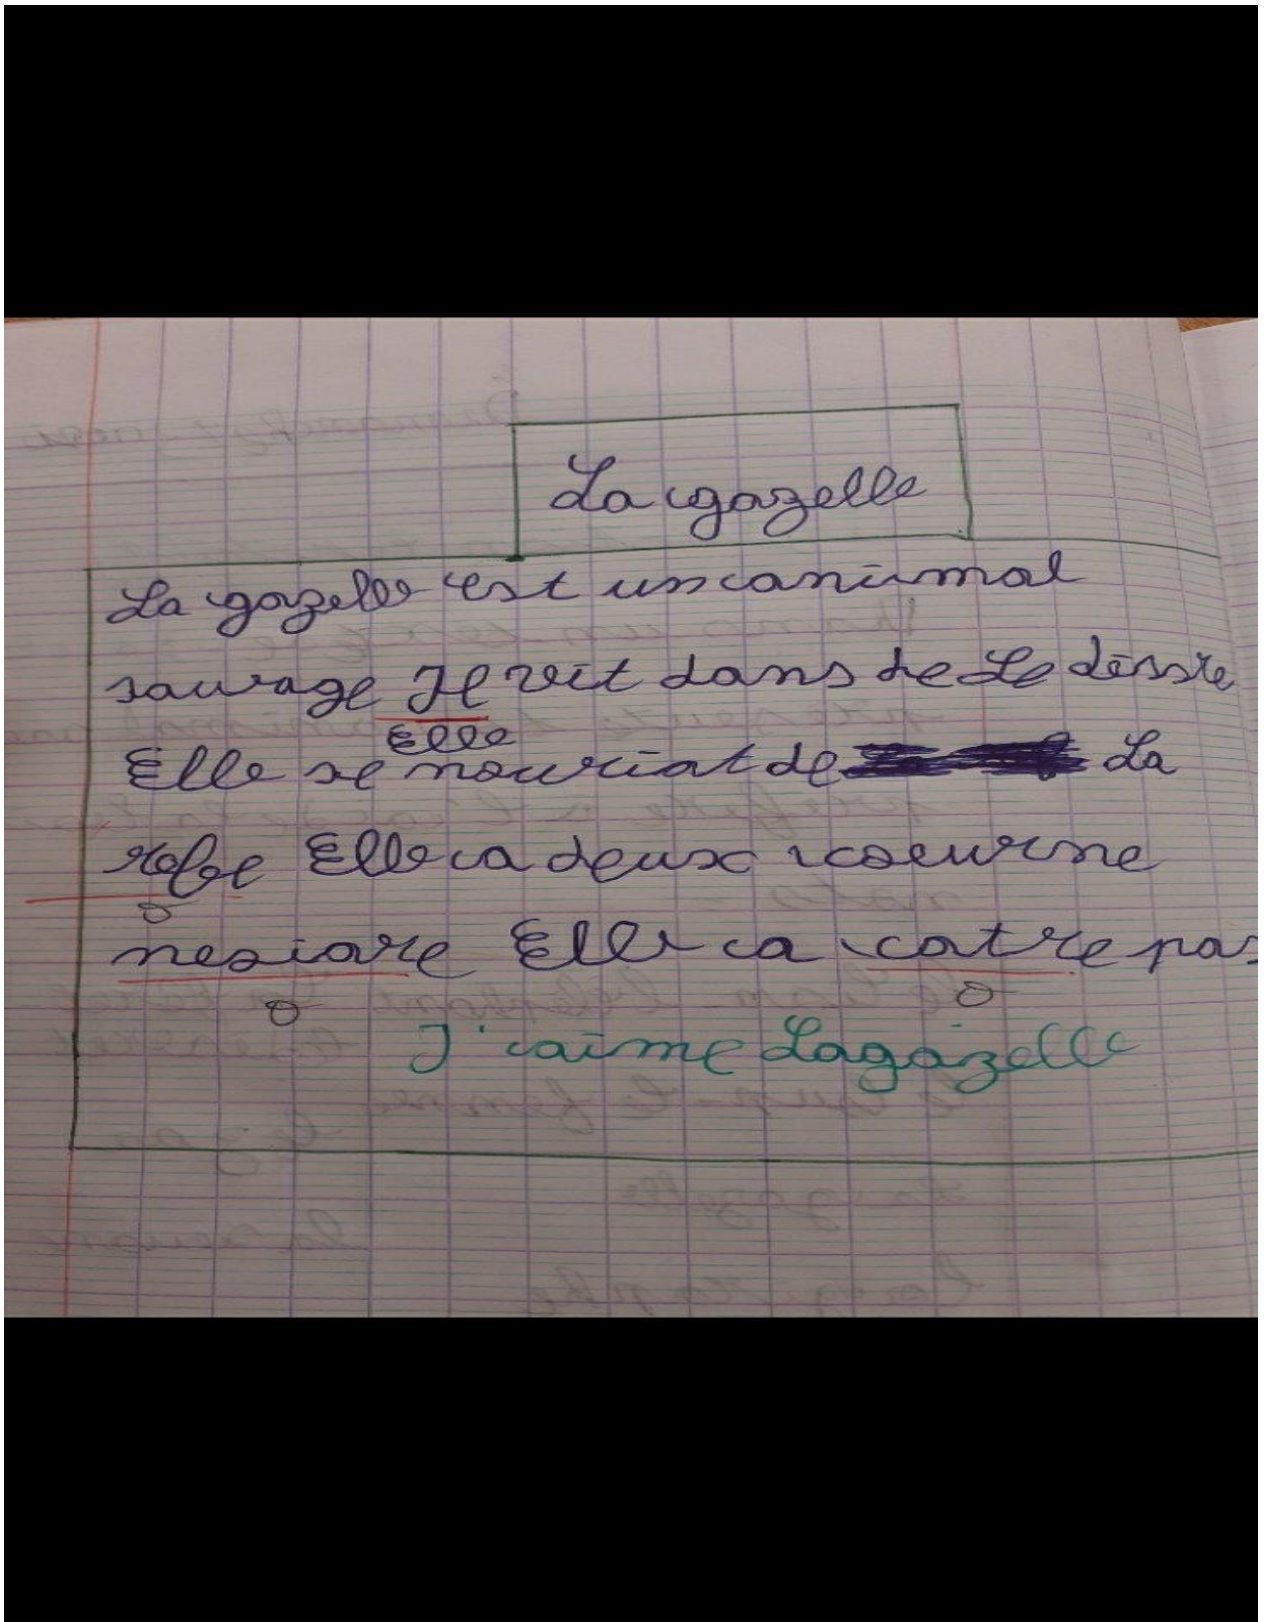 La gazelle
La gazelle est un animal
sauvage Il vit dans de Le dissre
Elle
Elle se nouriat de La
Elle a deux coeurne
nesiare Elle a catre pas
J'aime La gazelle